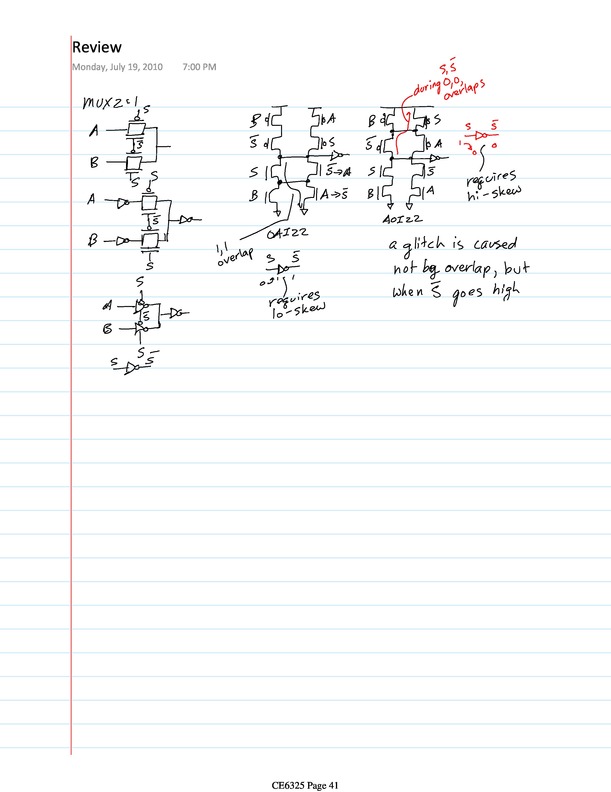 Review
Monday, July 19, 2010 7:00 PM
MUX2:1
S
A
S̅
B
S
S
A
S̅
B
S
S
A
S̅
B
S
S S̅
B A
S̅ S
S S̅→A
B A→S̅
OAI22
1,1
overlap
S S̅
0 1 1
requires
lo-skew
S, S̅
during 0,0,
overlaps
B S
S̅ A
S S̅
B A
AOI22
S S̅
1 0 0
requires
hi-skew
a glitch is caused
not by overlap, but
when S̅ goes high
CE6325 Page 41